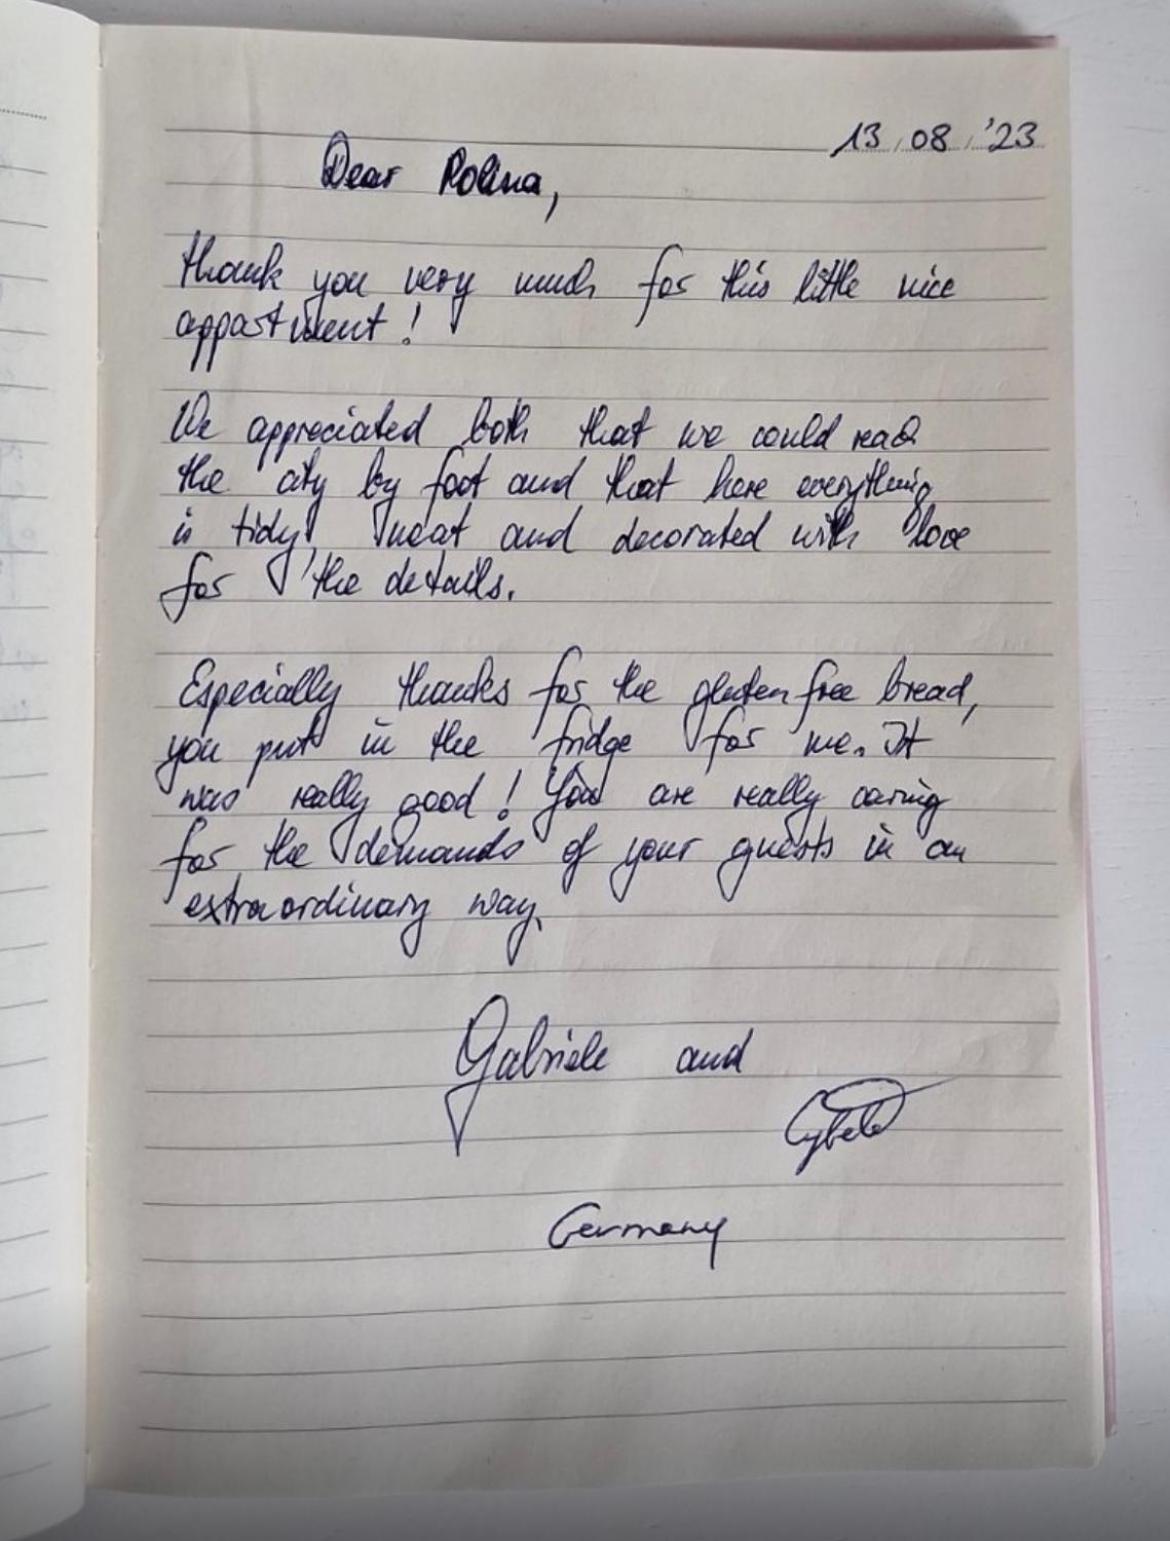 13.08.'23
Dear Rolina,
thank you very much for this little nice
appartment!
We appreciated both that we could reach
the city by foot and that here everything
is tidy, neat and decorated with love
for the details.
Especially thanks for the gluten free bread,
you put in the fridge for me. It
was really good! You are really caring
for the demands of your guests in an
extraordinary way.
Gabriele and
Germany